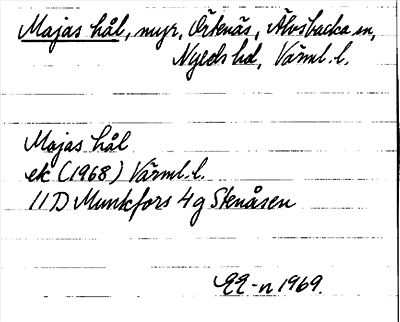 Majas hål, myr, Örtenäs, Älvsbacka sn,
Nyeds hd, Värml. l.
Majas hål
ek (1968) Värml. l.
11D Munkfors 4g Stenåsen
EE-n 1969.